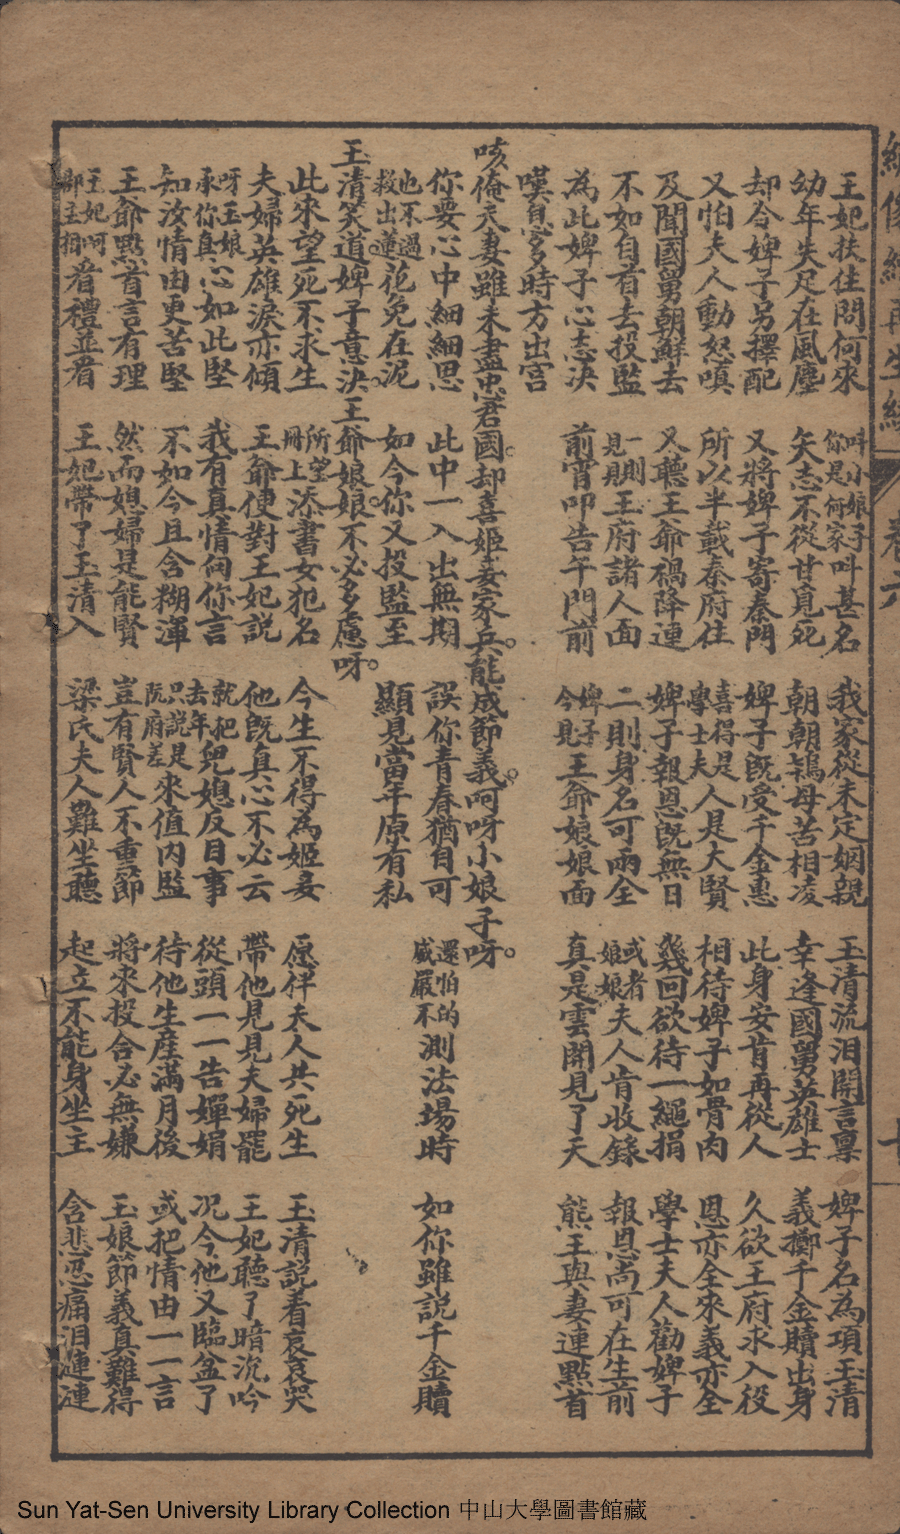 王妃扶住問何來 叫小娘子你是何家叫甚名 我家從未定姻親 玉清流泪開言禀 婢子名為項玉清
幼年失足在風塵 矢志不從甘覓死 朝朝鴇母苦相凌 幸逢國舅英雄士 義擲千金贖出身
却令婢子另擇配 又將婢子寄秦門 婢子既受千金惠 此身安肯再從人 久欲王府求入役
又怕夫人動怒嗔 所以半載秦府住 喜得是學士夫人是大賢 相待婢子如骨肉 恩亦全來義亦全
及聞國舅朝鮮去 又聽王爺禍降連 婢子報恩既無日 幾回欲待一繩捐 學士夫人勸婢子
不如自首去投監 一則見王府諸人面 二則身名可兩全 或者娘娘夫人肯收錄 報恩尚可在生前
為此婢子心志决 前宵叩告午門前 婢子今見王爺娘娘面 真是雲開見了天 熊王與妻連點首
嘆息多時方出言
咳俺夫妻雖未盡忠君國。却喜姬妾家兵。能成節義。呵呀小娘子呀。
你要心中細細思 此中一入出無期 誤你青春猶自可 還怕的威嚴不測法場時 如你雖説千金贖
也不過救出蓮花免在泥 如今你又投監至 顯見當年原有私
玉清笑道婢子意决。王爺娘娘。不必多慮呀。
此來望死不求生 所望冊上添書女犯名 今生不得為姬妾 愿伴夫人共死生 玉清説着哀哀哭
夫婦英雄淚亦傾 王爺便對王妃説 他既真心不必云 帶他見見夫婦罷 王妃聽了暗沉吟
呀玉娘承你真心如此堅 我有真情向你言 就把去年兒媳反目事 從頭一一告嬋娟 况今他又臨盆了
知汝情由更苦堅 不如今且含糊渾 只説是阮府差來值内監 待他生産滿月後 或把情由一一言
王爺點首言有理 然而媳婦是能賢 豈有賢人不重節 將來投合必無嫌 玉娘節義真難得
王妃呵郡主相看禮並看 王妃帶了玉清入 梁氏夫人難坐聽 起立不能身坐主 含悲忍痛泪漣漣
繪像繪再生緣
卷六
Sun Yat-Sen University Library Collection 中山大學圖書館藏